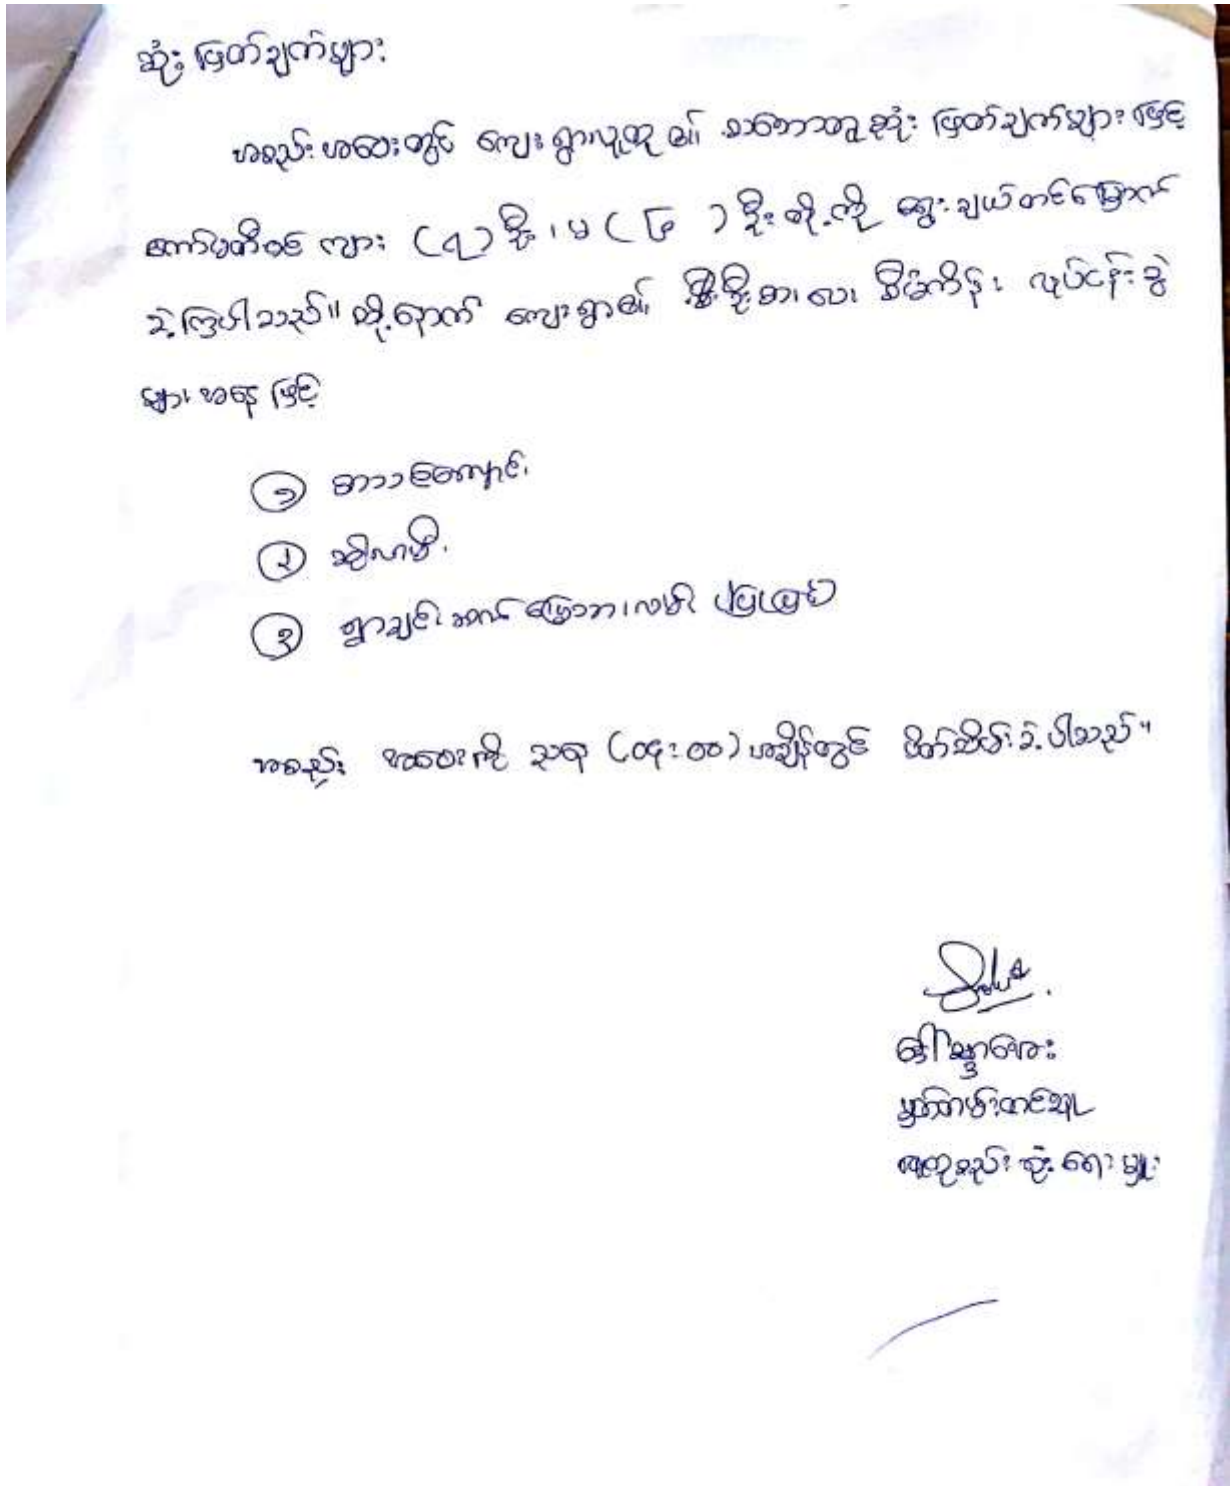 ဆုံးဖြတ်ချက်များ
အစည်းအဝေးတွင် ကျေးရွာလူထု၏ သဘောတူဆုံးဖြတ်ချက်များဖြင့်
ကော်မတီဝင် ကျား (၇) ဦး၊ မ ( ၆ ) ဦးတို့ကို ရွေးချယ်တင်မြှောက်
ခဲ့ကြပါသည်။ ထို့နောက် ကျေးရွာ၏ ဦးစားပေး စီမံကိန်း လုပ်ငန်းခွဲ
များအနေဖြင့်
၁ စာသင်ကျောင်း
၂ ဆိုလာမီး
၃ ရွာချင်းဆက်မြေသားလမ်း ပြုပြင်
အစည်းအဝေးကို ညနေ (၀၄:၀၀) အချိန်တွင် ပိတ်သိမ်းခဲ့ပါသည်။
ဒေါ်အေး
မှတ်တမ်းတင်သူ
လူထုစည်းရုံးရေးမှူး